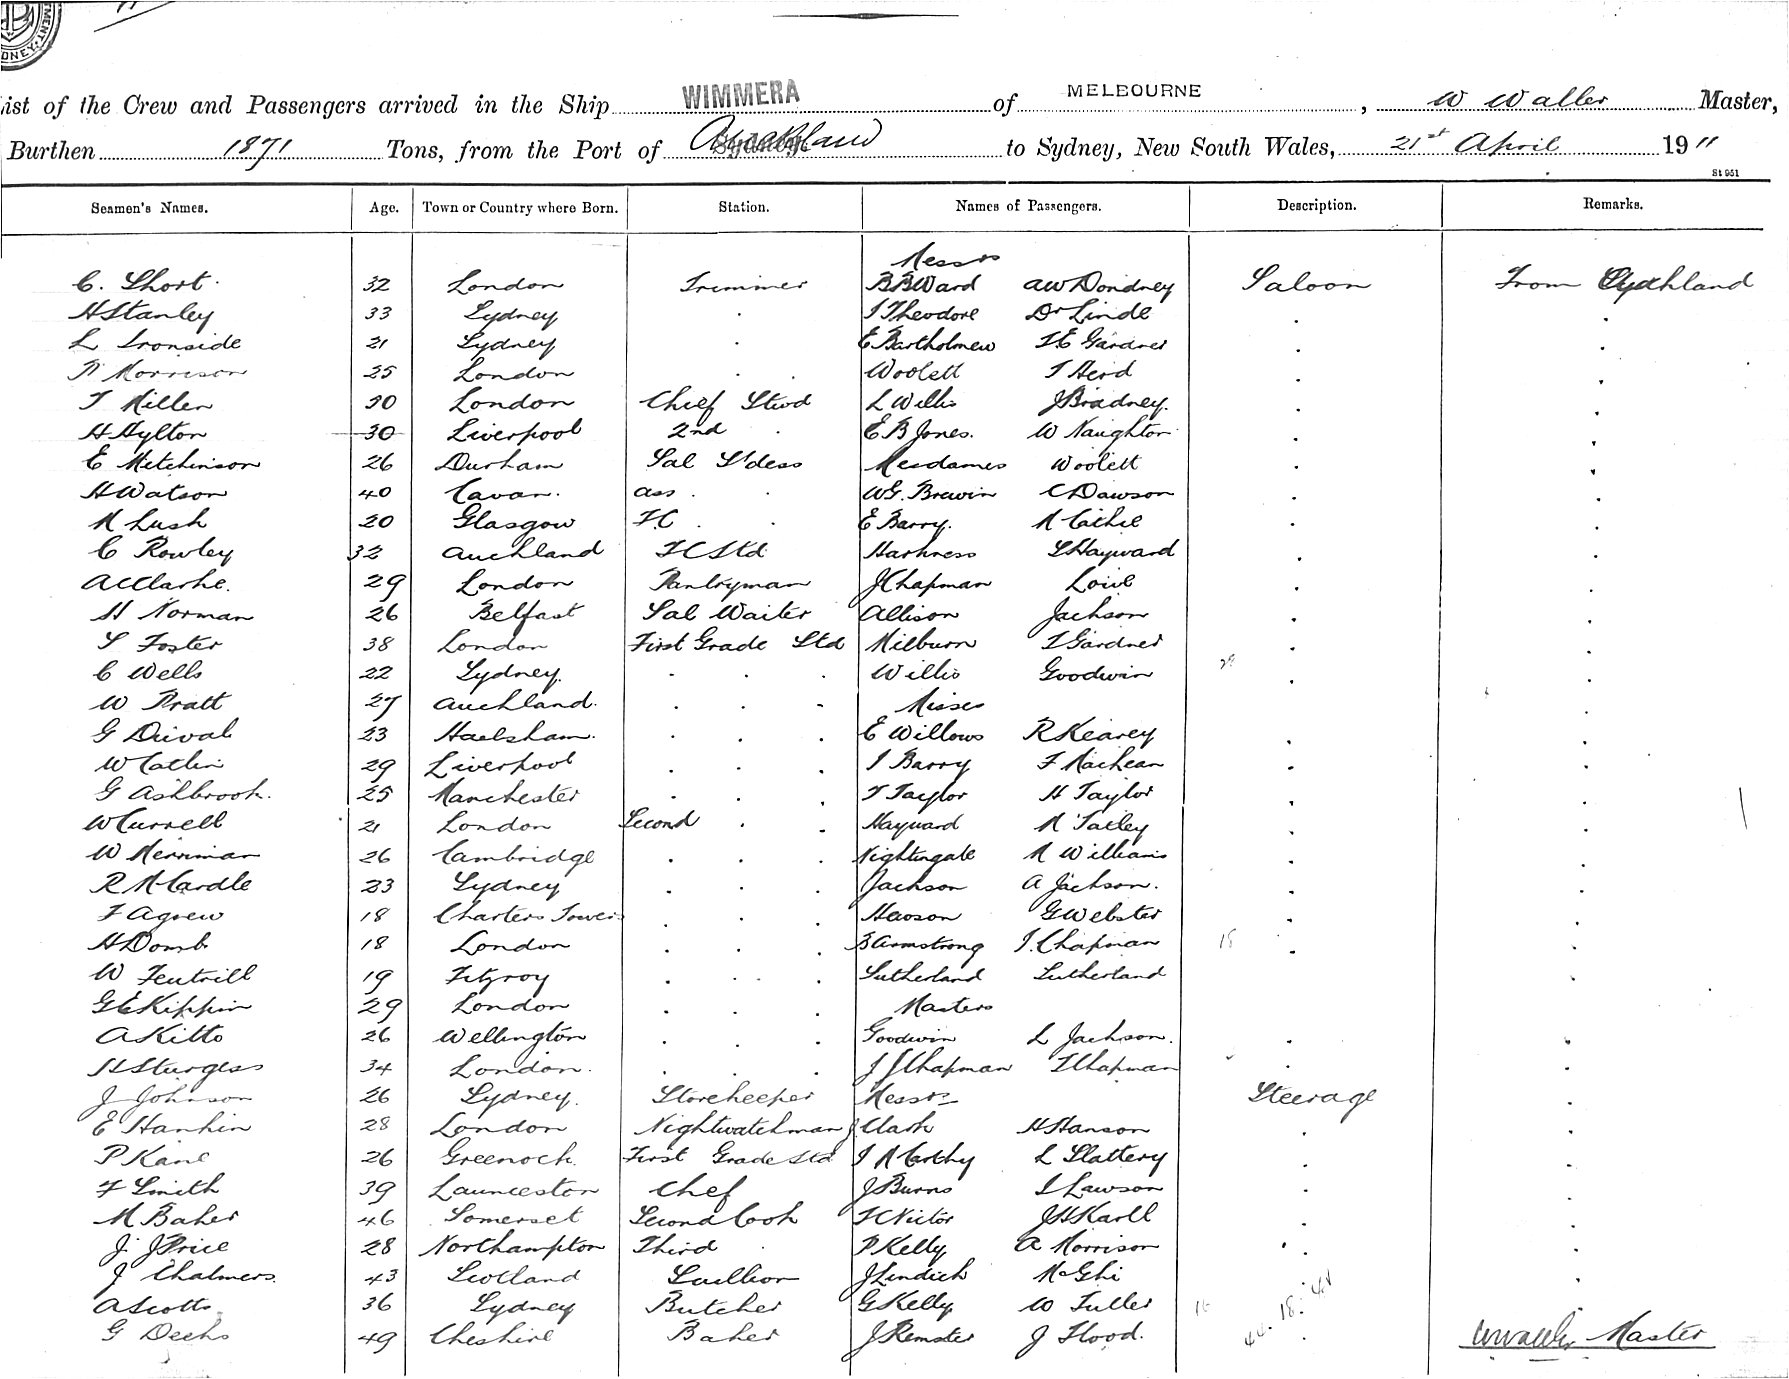 List of the Crew and Passengers arrived in the Ship WIMMERA of MELBOURNE, W Waller Master,
Burthen 1871 Tons, from the Port of Auckland to Sydney, New South Wales, 21st April 1911
St 951
Seamen's Names. Age. Town or Country where Born. Station. Names of Passengers. Description. Remarks.
Messrs
C. Short. 32 London Trimmer B B Ward A W Dondney Saloon From Auckland
H Stanley 33 Sydney . J Theodore Dr Linde . .
L Ironside 21 Sydney . E Bartholmew F E Gardner . .
Morrison 25 London . . Woolett T Herd . .
T Miller 30 London Chief Stwd L Willis J Bradney. . .
H Hylton 30 Liverpool 2nd . E B Jones. W Naughton . .
E Mitchinson 26 Durham Sal S'dess Mesdames Woolett . .
H Watson 40 Cavan. ass . . W G. Brewin C Dawson . .
M Lush 20 Glasgow F.C . . E Barry. M Cathie . .
C Rowley 32 Auckland F C Std Harkness L Hayward . .
A C Clarke. 29 London Pantryman J Chapman Lowe . .
H Norman 26 Belfast Sal Waiter Allison Jackson . .
S Foster 38 London First Grade Std Milburn I Gardner . .
C Wells 22 Sydney. . . . Willis Goodwin . .
W Pratt 27 Auckland. . . . Misses .
G Duval 23 Hailsham. . . . E Willows R Kearey . .
W Catlin 29 Liverpool . . . I Barry F MacLean . .
G Ashbrook. 25 Manchester . . . T Taylor H Taylor . .
W Currell 21 London Second . . Hayward M Tatley . .
W Merriman 26 Cambridge . . . Nightingale M Williams . .
R McCardle 23 Sydney . . . Jackson A Jackson. . .
F Agnew 18 Charters Towers . . . Hewson G Webster . .
H Domb 18 London . . . B Armstrong I. Chapman . .
W Feutrill 19 Fitzroy . . . Sutherland Sutherland .
G E Kippin 29 London . . . Masters
A Kitto 26 Wellington . . . Goodwin L Jackson. . .
H Sturgess 34 London. . . . J J Chapman T Chapman . .
J Johnson 26 Sydney. Storekeeper Messrs Steerage .
E Hankin 28 London Nightwatchman J Clark H Hanson . .
P Kane 26 Greenock. First Grade Std J McCarthy L Slattery . .
F Smith 39 Launceston Chef J Burns I Lawson . .
M Baker 46 Somerset Second Cook F C Victor J H Karll . .
J. J Price 28 Northampton Third . P Kelly A Morrison . .
J Chalmers. 43 Scotland Scullion J Lindich McGhi .
A Scotts 36 Sydney Butcher G Kelly. W Fuller .
G Deeks 49 Cheshire Baker J Remster J Flood. . W Waller Master